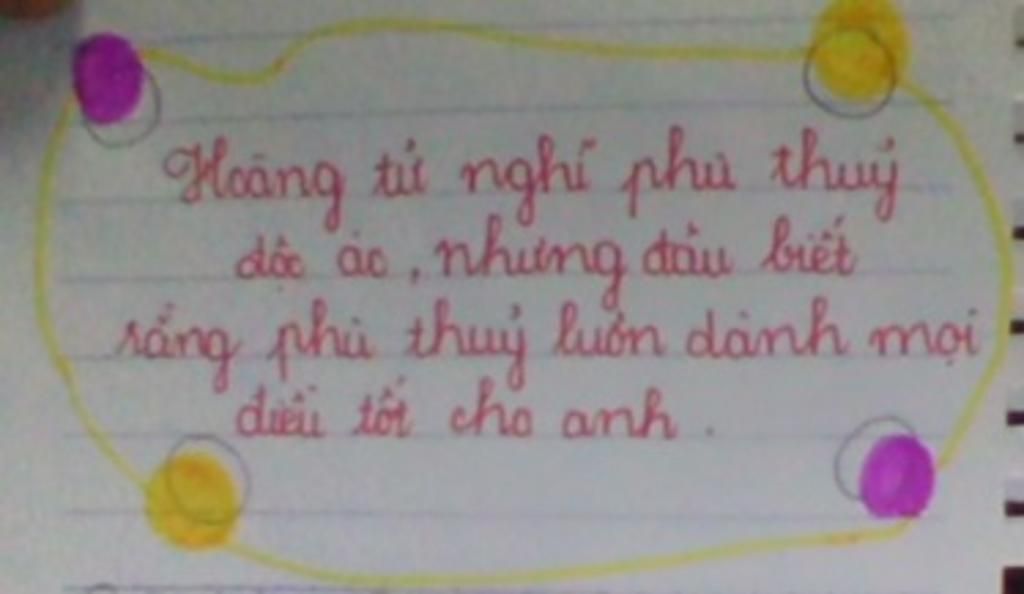 Hoàng tử nghĩ phù thuỷ
độc ác, nhưng đâu biết
rằng phù thuỷ luôn dành mọi
điều tốt cho anh.